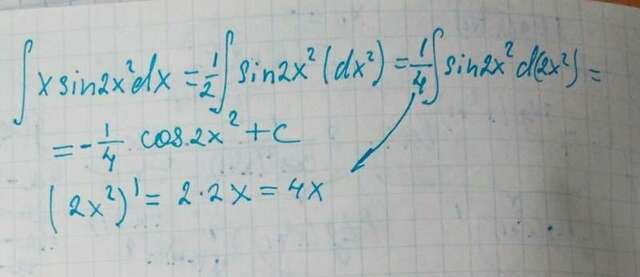 ∫ x sin2x² dx = 1/2 ∫ sin2x² (dx²) = 1/4 ∫ sin2x² d(2x²) =
= -1/4 cos 2x² + C
(2x²)' = 2·2x = 4x